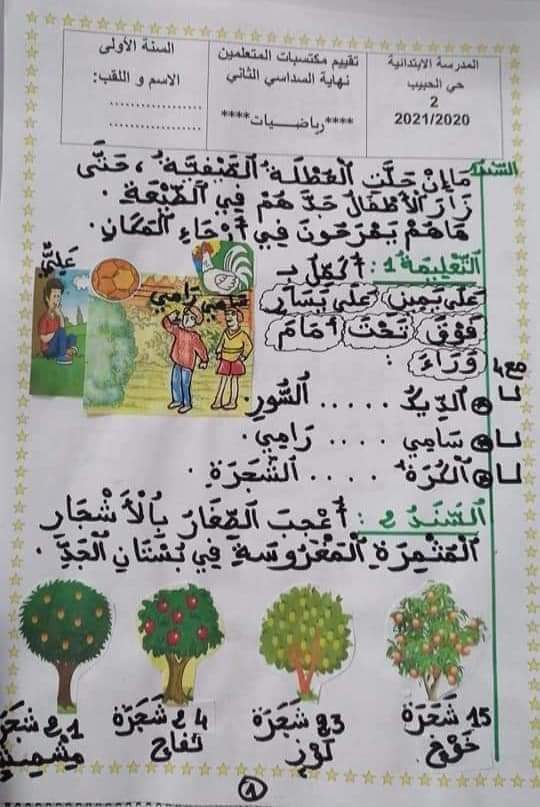 المدرسة الابتدائية
حي الحبيب
2
2021/2020
تقييم مكتسبات المتعلمين
نهاية السداسي الثاني
****رياضـــيـات****
السنة الأولى
الاسم و اللقب:
..................
..................
السند
مَا إِنْ حَلَّتِ الْعُطْلَةُ الصَّيْفِيَّةُ، حَتَّى
زَارَ الْأَطْفَالُ جَدَّهُمْ فِي الضَّيْعَةِ.
هَاهُمْ يَمْرَحُونَ فِي أَرْجَاءِ الْمَكَانِ.
التَّعْلِيمَة 1: أُكْمِلُ بـ
عَلَى يَمِينِ عَلَى يَسَارِ
فَوْقَ تَحْتَ أَمَامَ
وَرَاءَ :
مع1
عَلِيٌّ
سَامِي
رَامِي
الدِّيكُ ..... السُّورِ.
سَامِي .... رَامِي.
الْكُرَةُ .... الشَّجَرَةِ.
السَّنَدُ 2: أُعْجِبَ الصِّغَارُ بِالْأَشْجَارِ
الْمُثْمِرَةِ الْمَغْرُوسَةِ فِي بُسْتَانِ الْجَدِّ.
15 شَجَرَة
خَوْخ
23 شَجَرَة
لَوْز
24 شَجَرَة
تُفَّاح
21 شَجَرَة
مِشْمِش